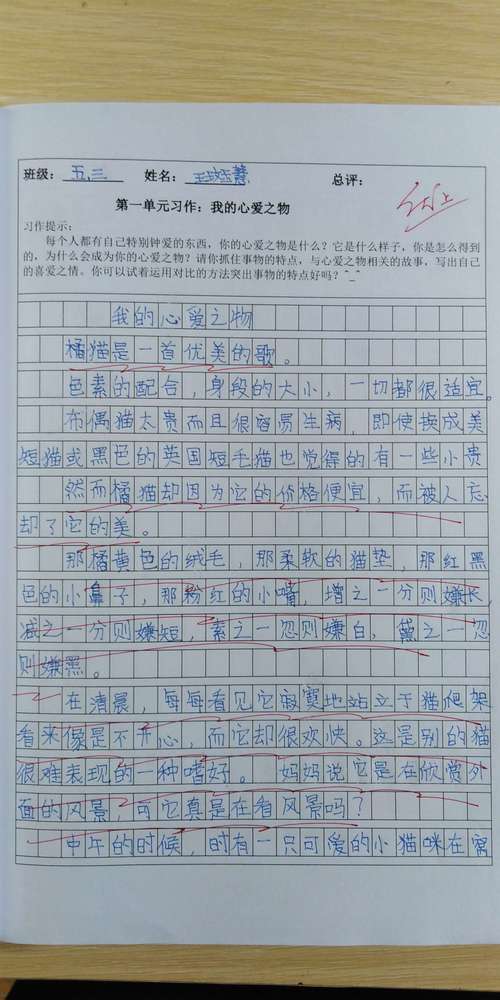 班级：五、三 姓名：王 慧 总评：
第一单元习作：我的心爱之物
习作提示：
每个人都有自己特别钟爱的东西，你的心爱之物是什么？它是什么样子，你是怎么得到
的，为什么会成为你的心爱之物？请你抓住事物的特点，与心爱之物相关的故事，写出自己
的喜爱之情。你可以试着运用对比的方法突出事物的特点好吗？^_^
我的心爱之物
橘猫是一首优美的歌。
色素的配合，身段的大小，一切都很适宜。
布偶猫太贵而且很容易生病，即使换成美
短猫或黑色的英国短毛猫也觉得的有一些小贵
然而橘猫却因为它的价格便宜，而被人忘
却了它的美。
那橘黄色的绒毛，那柔软的猫垫，那红黑
色的小鼻子，那粉红的小嘴，增之一分则嫌长，
减之一分则嫌短，素之一忽则嫌白，黛之一忽
则嫌黑。
在清晨，每每看见它寂寞地站立于猫爬架
看来像是不开心，而它却很欢快。这是别的猫
很难表现的一种嗜好。 妈妈说它是在欣赏外
面的风景，可它真是在看风景吗？
中午的时候，时有一只可爱的小猫咪在窝